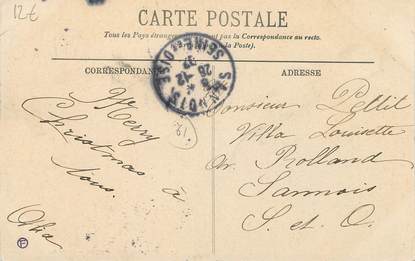 12€
CARTE POSTALE
Tous les Pays étrangers pas la Correspondance au recto.
la Poste).
CORRESPONDANCE
ADRESSE
SANNOIS
SEINE ET OISE
Merry
Christmas à
tous.
Monsieur Pettit
Villa Louisette
Av. Rolland
Sannois
S. et O.